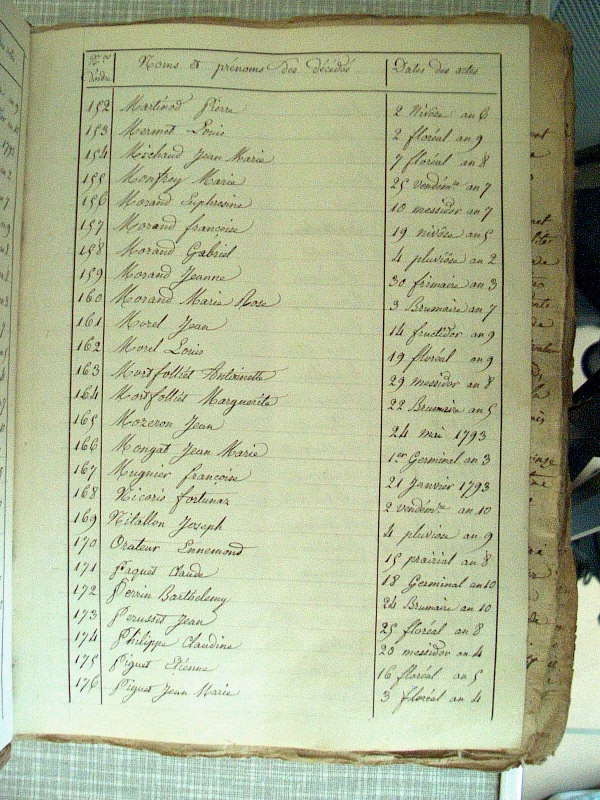 Nos d'ordre Noms et prénoms des décédés Dates des actes
152 Martinod Pierre 2 Nivôse an 6
153 Mermet Louis 2 floréal an 9
154 Michaud Jean Marie 7 floréal an 8
155 Monfrey Marie 25 vendém.re an 7
156 Morand Euphrosine 10 messidor an 7
157 Morand françoise 19 nivôse an 5
158 Morand Gabriel 4 pluviôse an 2
159 Morand Jeanne 30 frimaire an 3
160 Morand Marie Rose 3 Brumaire an 7
161 Morel Jean 14 fructidor an 9
162 Morel Louis 19 floréal an 9
163 Mortfolliét Antoinette 29 messidor an 8
164 Mortfolliét Marguerite 22 Brumaire an 5
165 Mozeron Jean 24 mai 1793
166 Mongat Jean Marie 1er Germinal an 3
167 Mugnier françoise 21 Janvier 1793
168 Nicoris fortunat 2 vendém.re an 10
169 Nitallon Joseph 4 pluviose an 9
170 Orateur Ennemond 15 prairial an 8
171 Paquet Claude 18 Germinal an 10
172 Perrin Barthelemy 24 Brumaire an 10
173 Perusset Jean 25 floréal an 8
174 Philippe Claudine 20 messidor an 4
175 Piguet Etienne 16 floréal an 5
176 Piguet Jean Marie 3 floréal an 4